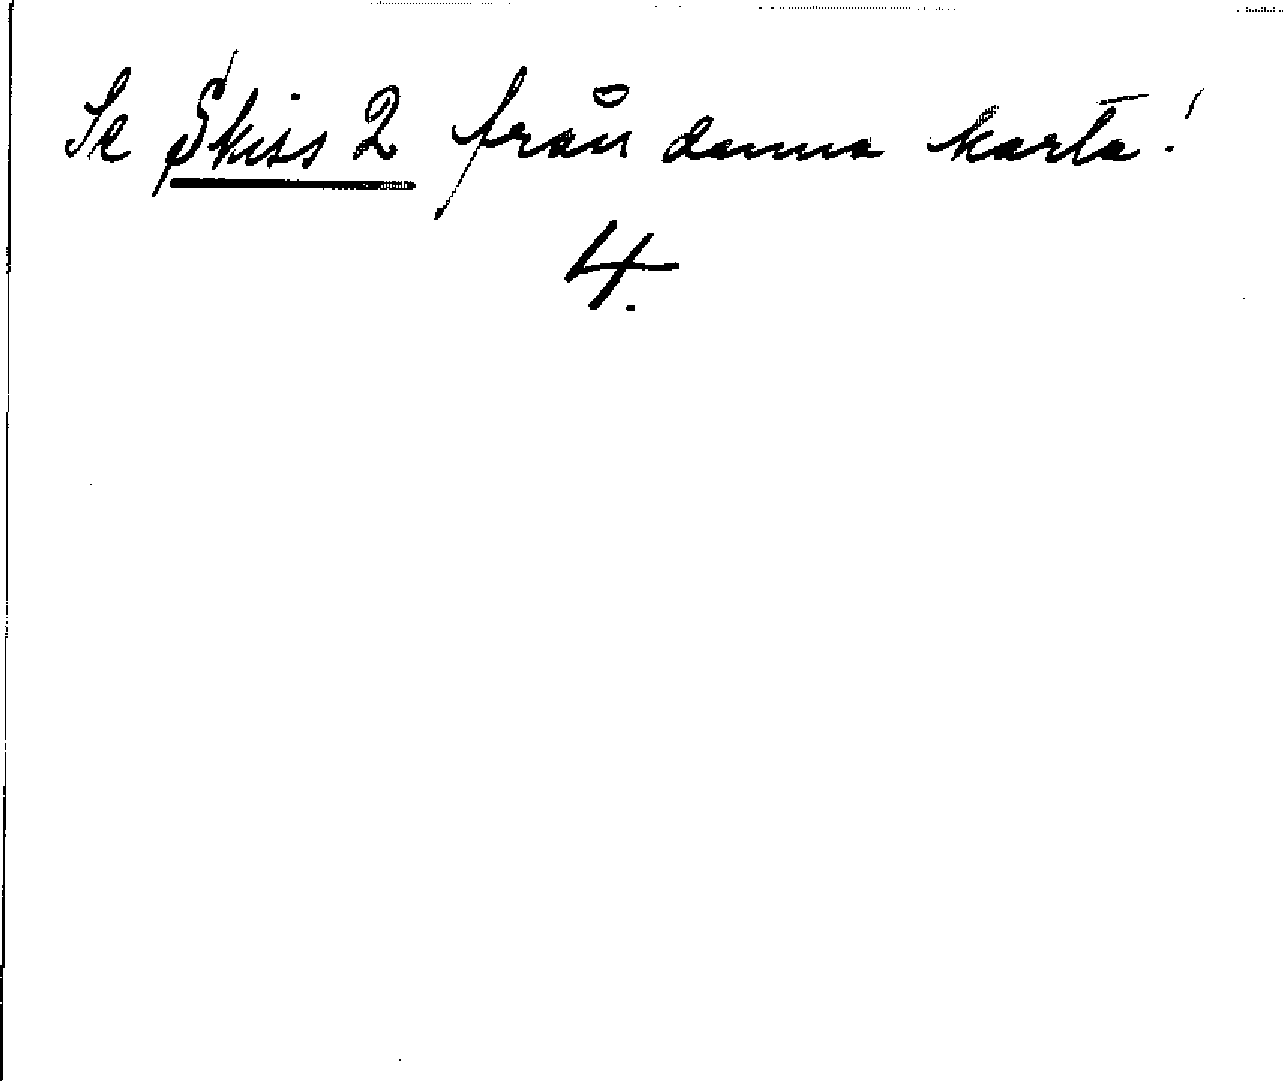 Se Skiss 2 från denna karta!
4.